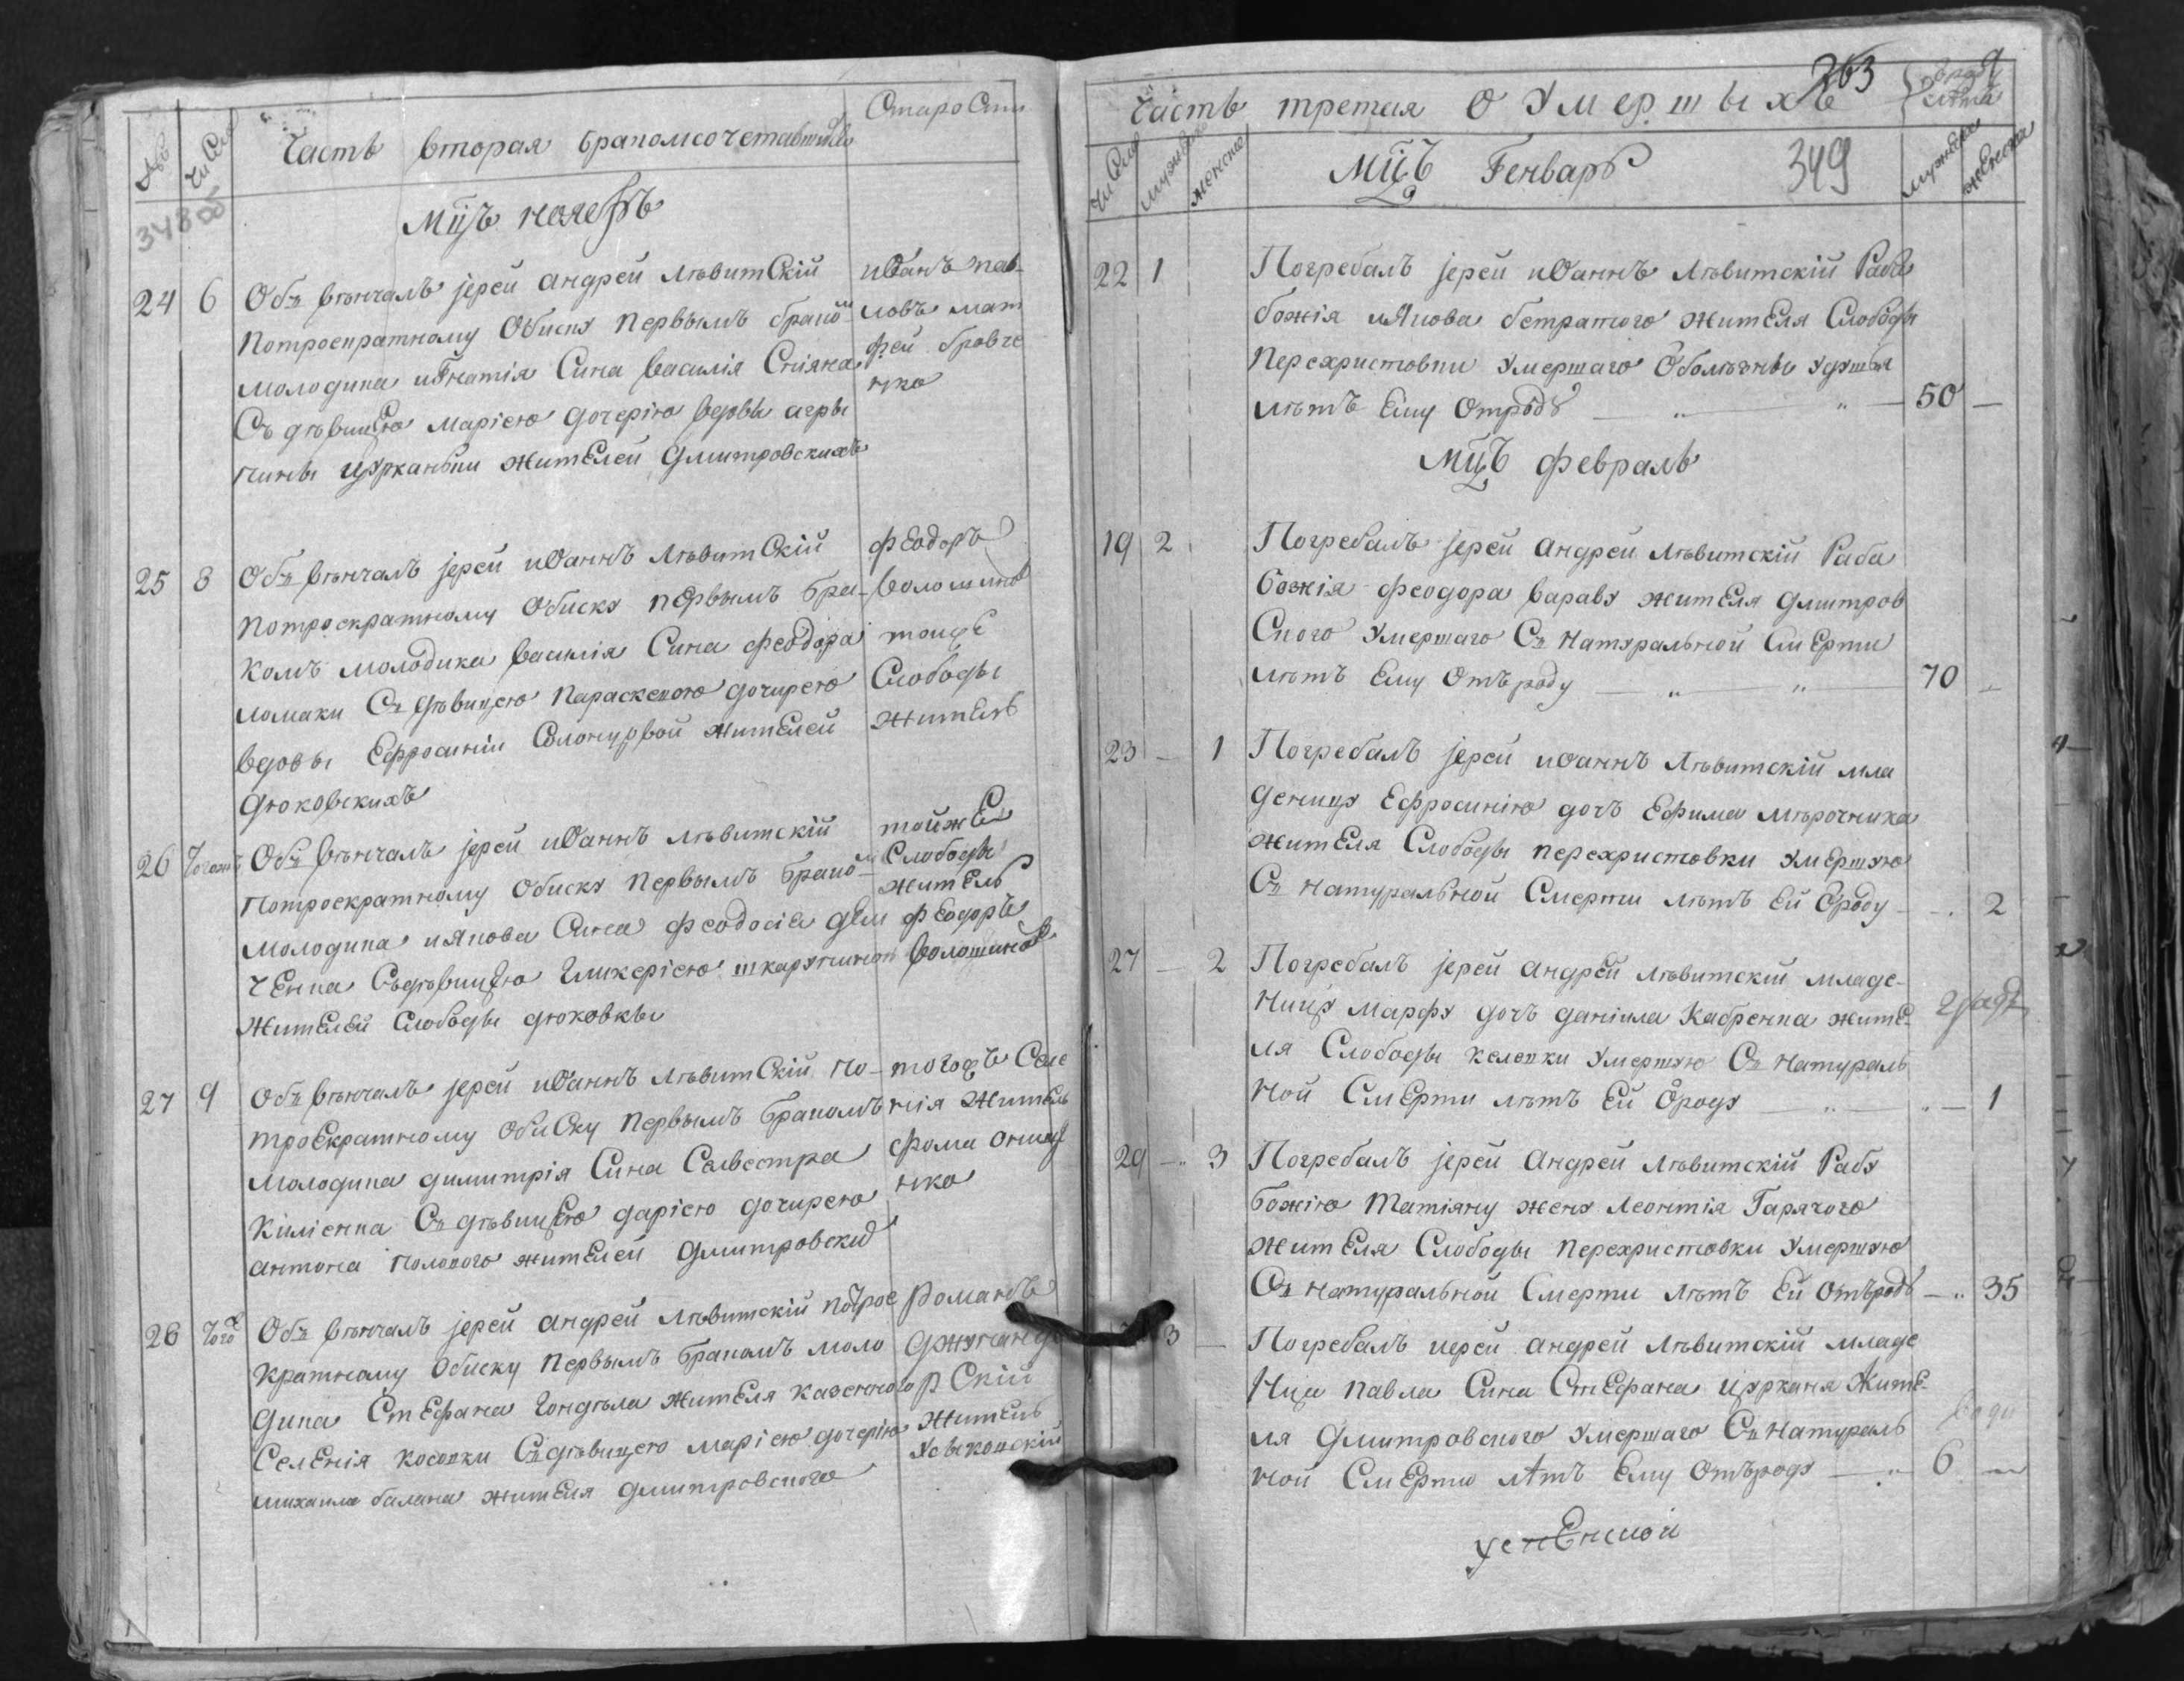 Число
Часть вторая бракомсочетавшихся
Старости
348 об
Мцъ ноябръ
24 6 Объвѣнчалъ іерей андрей лѣвитскій
потроекратному обиску первымъ брако
молодика игнатія сина василія
съ дѣвицею маріею дочерію вдовы агри
пины жителей дмитровскихъ
иванъ пав
ловъ мат
фей бровче
нко
25 8 Объвѣнчалъ іерей иоаннъ лѣвитскій
потроекратному обиску первымъ бра
комъ молодика василія сина феодора
ломаки съ дѣвицею параскевою дочирею
вдовы Ефросиніи жителей
дюковскихъ
феодоръ
волошинъ
тоиже
слободы
житель
26 тогожъ Объвѣнчалъ іерей иоаннъ лѣвитскій
потроекратному обиску первымъ брако
молодика иякова сина феодосіа дем
ченка съдѣвицею гликеріею
жителей слободы дюковки
тойже
слободы
житель
феодоръ
волошинъ
27 9 Объвѣнчалъ іерей иоаннъ лѣвитскій по
троекратному обиску первымъ бракомъ
молодика димитрія сина селвестра
киліенка съ дѣвицею даріею дочирею
антона полового жителей дмитровских
тогожъ селе
нія житель
фома
нко
28 того Объвѣнчалъ іерей андрей лѣвитскій потрое
кратному обиску первымъ бракомъ моло
дика стефана гондѣла жителя казенного
селенія косовки съ дѣвицею маріею дочерію
михаила балана жителя дмитровского
романъ
житель
363
Часть третая о умершыхъ
лѣта
число мужеска женска
Мцъ Генваръ
349
мужеска женска
22 1 Погребалъ іерей иоаннъ лѣвитскій раба
божія иякова жителя слободы
перехристовки умершаго
лѣтъ ему отроду 50
Мцъ февраль
19 2 Погребалъ іерей андрей лѣвитскій раба
божія феодора вараву жителя дмитров
ского умершаго съ натуральной смерти
лѣтъ ему отъроду 70
23 1 Погребалъ іерей иоаннъ лѣвитскій мла
деницу ефросинію дочъ ефима мѣрочника
жителя слободы перехристовки умершую
съ натуральной смерти лѣтъ ей ѿроду 2
27 2 Погребалъ іерей андрей лѣвитскій младе
ницу марфу дочъ даніила кабренка жите
ля слободы умершую съ натураль
ной смерти лѣтъ ей ѿроду 1
29 3 Погребалъ іерей андрей лѣвитскій рабу
божію татіяну жену леонтія гарячого
жителя слободы перехристовки умершую
съ натуральной смерти лѣтъ ей отъроду 35
3 Погребалъ иерей андрей лѣвитскій младе
нца павла сина стефана жите
ля дмитровского умершаго съ натураль
ной смерти лѣтъ ему отъроду 6